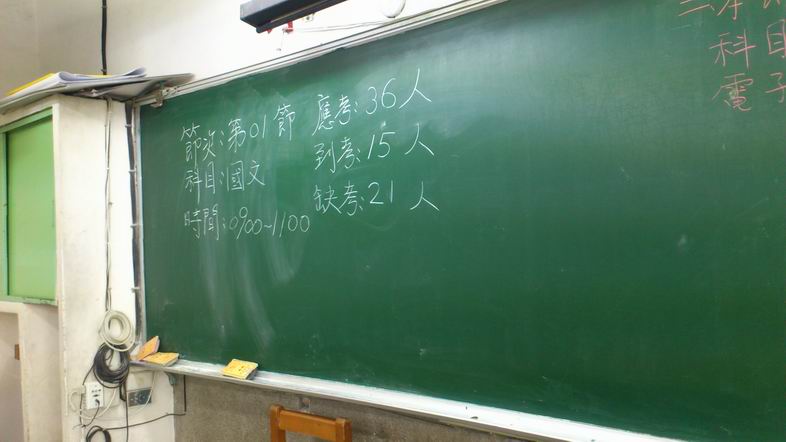 節次:第01節
科目:國文
時間:0900~1100
應考:36人
到考:15人
缺考:21人
科目
電子